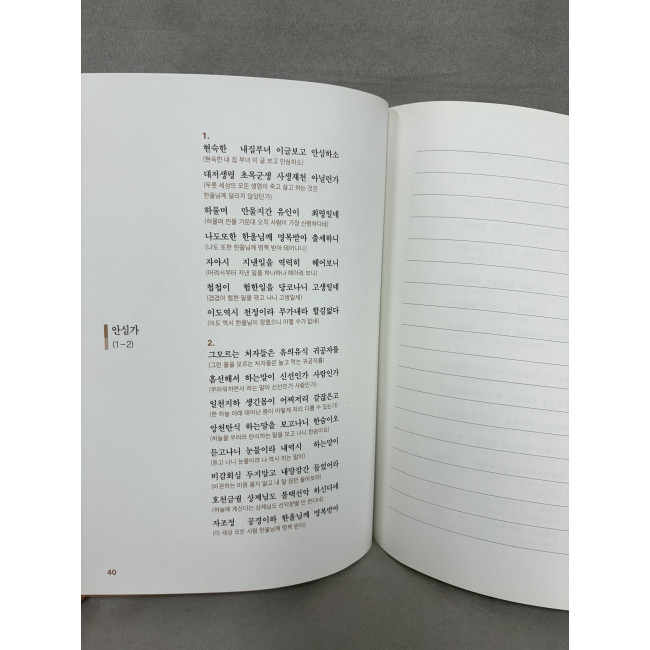 안심가
(1-2)
1.
현숙한 내집부녀 이글보고 안심하소
(현숙한 내 집 부녀 이 글 보고 안심하소)
대저생령 초목군생 사생재천 아닐런가
(무릇 세상의 모든 생명이 죽고 살고 하는 것은
한울님께 달리지 않았던가)
하물며 만물지간 유인이 최령일네
(하물며 만물 가운데 오직 사람이 가장 신령하다네)
나도또한 한울님께 명복받아 출세하니
(나도 또한 한울님께 명복 받아 태어나니)
자아시 지낸일을 역력히 헤어보니
(어려서부터 지낸 일을 하나하나 헤아려 보니)
첩첩이 험한일을 당코나니 고생일네
(겹겹이 험한 일을 겪고 나니 고생일세)
이도역시 천정이라 무가내라 할길없다
(이도 역시 한울님이 정했으니 어쩔 수가 없네)
2.
그모르는 처자들은 유의유식 귀공자를
(그런 줄을 모르는 처자들은 놀고 먹는 귀공자를)
흠선해서 하는말이 신선인가 사람인가
(부러워하면서 하는 말이 신선인가 사람인가)
일천지하 생긴몸이 어찌저리 같잖은고
(한 하늘 아래 태어난 몸이 어떻게 저리 다를 수 있는가)
앙천탄식 하는말을 보고나니 한숨이오
(하늘을 우러러 탄식하는 말을 보고 나니 한숨이요)
듣고나니 눈물이라 내역시 하는말이
(듣고 나니 눈물이라 나 역시 하는 말이)
비감회심 두지말고 내말잠간 들었어라
(비관하는 마음 품지 말고 내 말 잠깐 들어보아라)
호천금궐 상제님도 불택선악 하신다네
(하늘에 계신다는 상제님도 선악분별 안 한다네)
자조정 공경이하 한울님께 명복받아
(이 세상 모든 사람 한울님께 명복 받아)
40